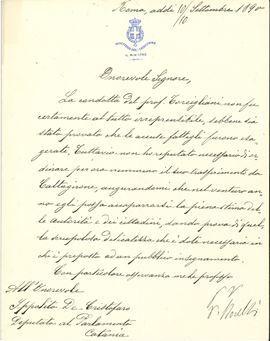 Roma, addì 10 Settembre 1890
Onorevole Signore,
La condotta del prof. Torcigliani non fu
certamente al tutto irreprensibile, sebbene sia
stato provato che le accuse fattegli furono esa-
gerate. Tuttavia non ho reputato necessario di or-
dinare per ora nemmeno il suo trasferimento da
Caltagirone, augurandomi che nel venturo an-
no egli possa accaparrarsi la piena stima del-
le autorità e dei cittadini, dando prova di
scrupolosa delicatezza che è dote necessaria in
chi è preposto ad un pubblico insegnamento.
Con particolare osservanza me le professo
All'Onorevole
Ippolito De Cristofaro
Deputato al Parlamento
Catania